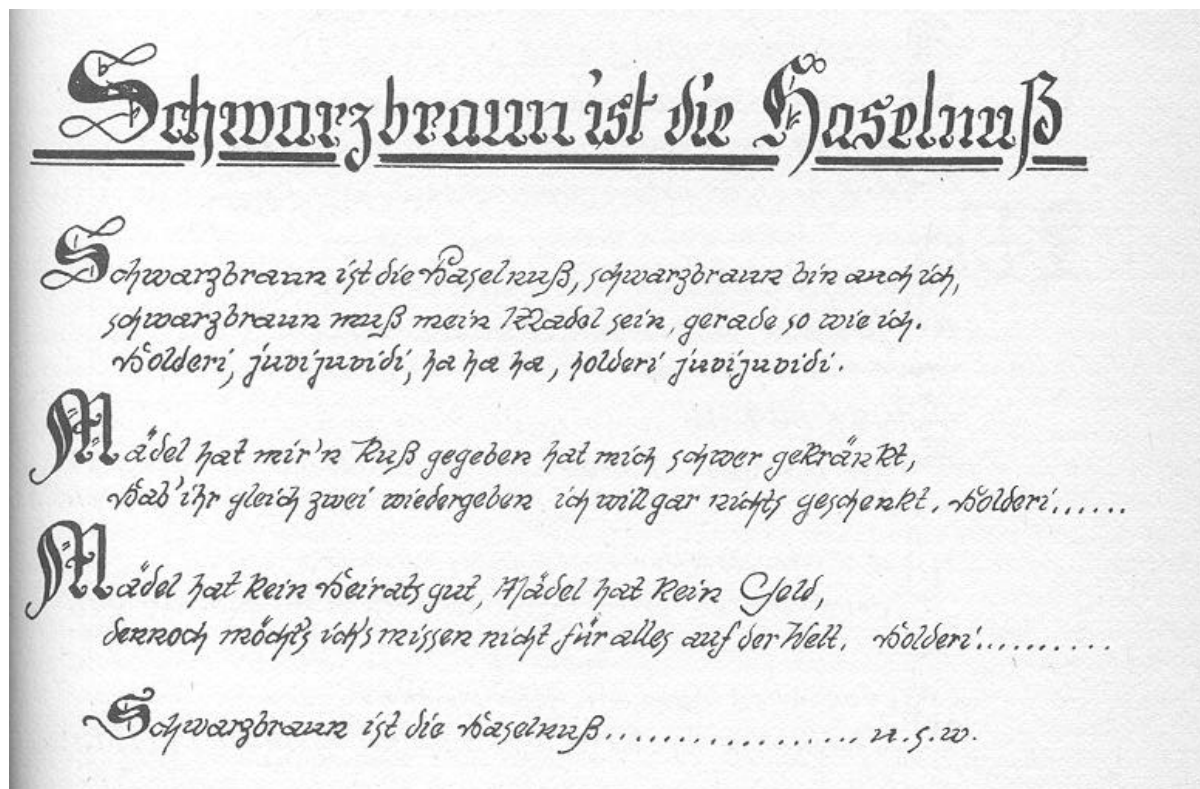 Schwarzbraun ist die Haselnuß
Schwarzbraun ist die Haselnuß, schwarzbraun bin auch ich,
schwarzbraun muß mein Madel sein, gerade so wie ich.
Holderi, juvijuvidi, ha ha ha, holderi juvijuvidi.
Mädel hat mir'n Kuß gegeben hat mich schwer gekränkt,
Hab' ihr gleich zwei wiedergeben ich will gar nichts geschenkt. Holderi......
Mädel hat kein Heiratsgut, Mädel hat kein Geld,
dennoch möcht's ich's missen nicht für alles auf der Welt. Holderi..........
Schwarzbraun ist die Haselnuß.................. u.s.w.